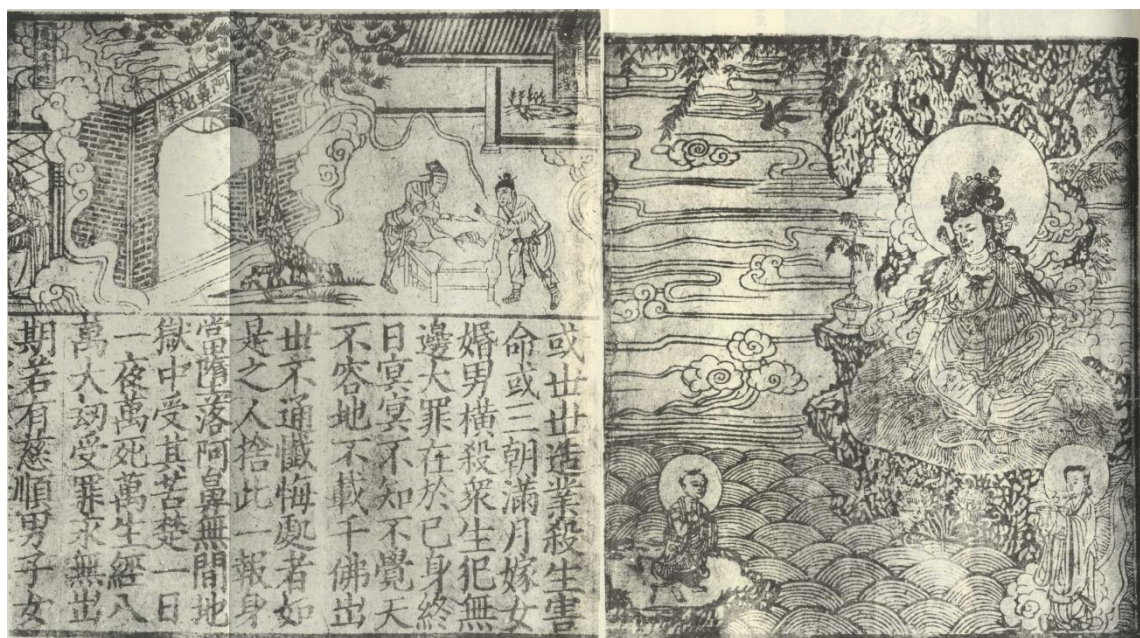 阿鼻地獄
或世世造業殺生害
命或三朝滿月嫁女
婚男橫殺衆生犯無
邊大罪在於己身終
日冥冥不知不覺天
不容地不載千佛出
世不通懺悔處者如
是之人捨此一報身
當墮落阿鼻無間地
獄中受其苦楚一日
一夜萬死萬生經八
萬大劫受罪永無出
期若有慈順男子女